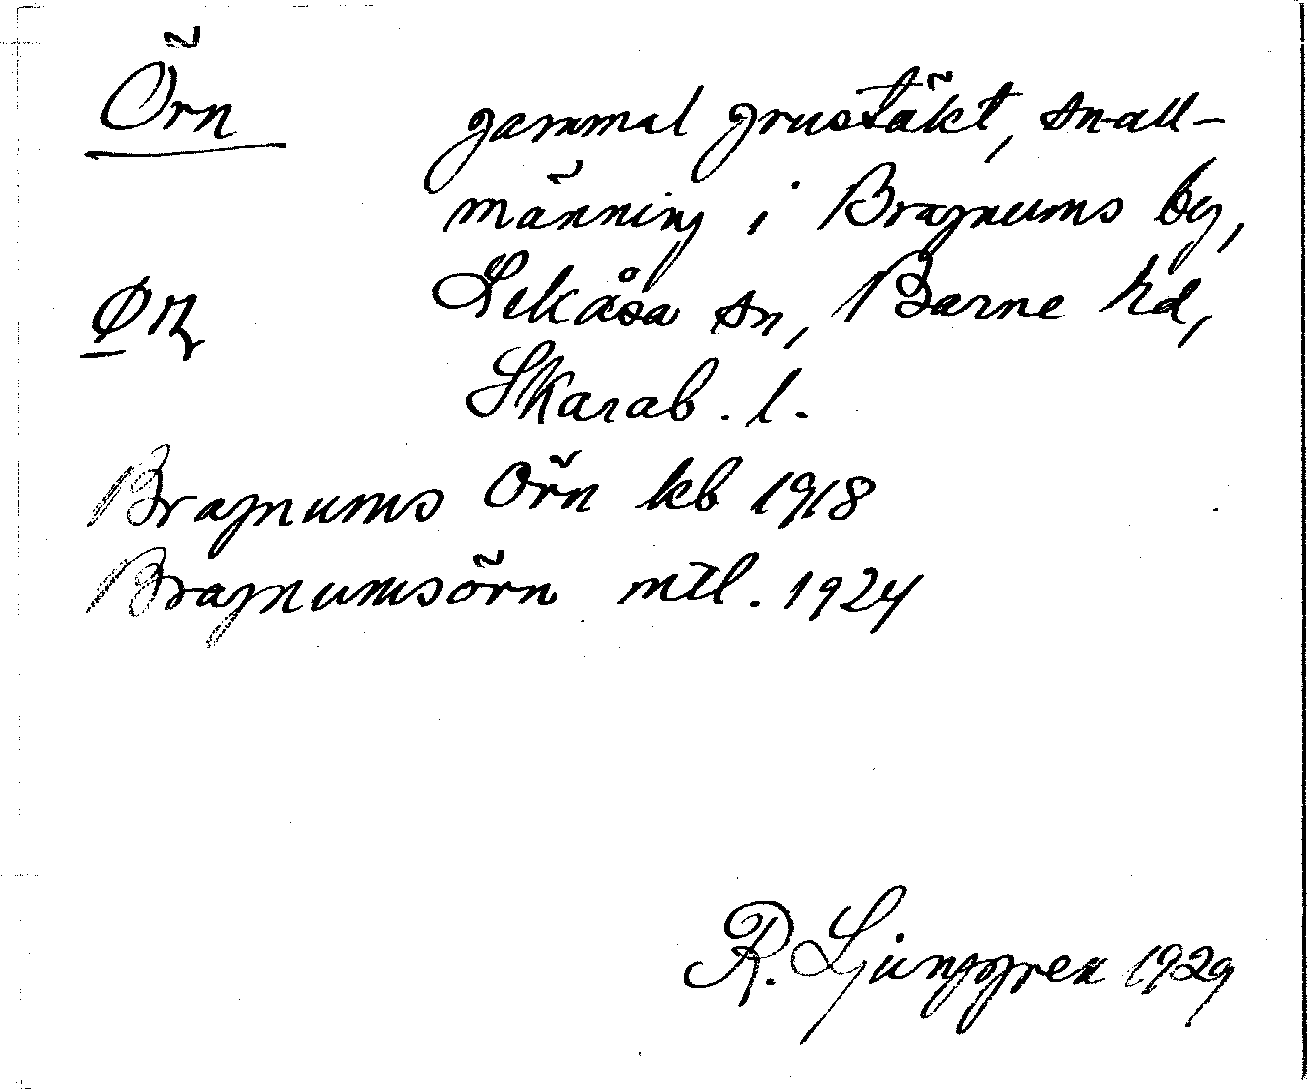 Örn gammal grustäkt, sn-all-
männing i Bragnums by,
Lekåsa sn, Barne hd,
Skarab. l.
Bragnums Örn kb 1918
Bragnumsörn mtl. 1924
R. Ljunggren 1929